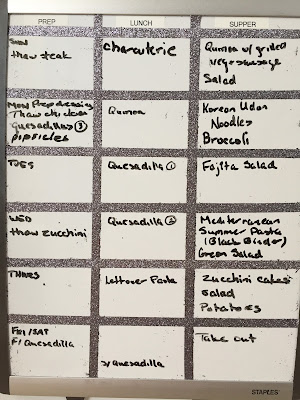 PREP LUNCH SUPPER
SUN
thaw steak
charcuterie
Quinoa w/ grilled
veg + sausage
Salad
MON Prep dressing
Thaw chicken
Quesadillas 3
popsicles
Quinoa
Korean Udon
Noodles
Broccoli
TUES
Quesadilla 1
Fajita Salad
WED
thaw zucchini
Quesadilla 2
Mediterranean
Summer Pasta
(Black Binder)
Green Salad
THURS
Leftover Pasta
Zucchini cakes
Salad
Potatoes
FRI/SAT
F/Quesadilla
S/Quesadilla
Take out
STAPLES